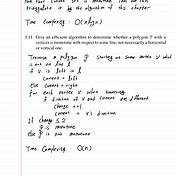 triangulate it by the algorithm of this chapter
Time Complexity : O(n log n)
3.11 Give an efficient algorithm to determine whether a polygon P with n
vertices is monotone with respect to some line, not necessarily a horizontal
or vertical one.
Traverse a polygon P starting at some vertex V which
is not on line l
if V is left in l
current = left
else current = right
for each vertex V when traversing
if direction of V and current are different
change ++
current = V's direction
if change ≤ 2
P is monotone
else P is not monotone
Time Complexity : O(n)